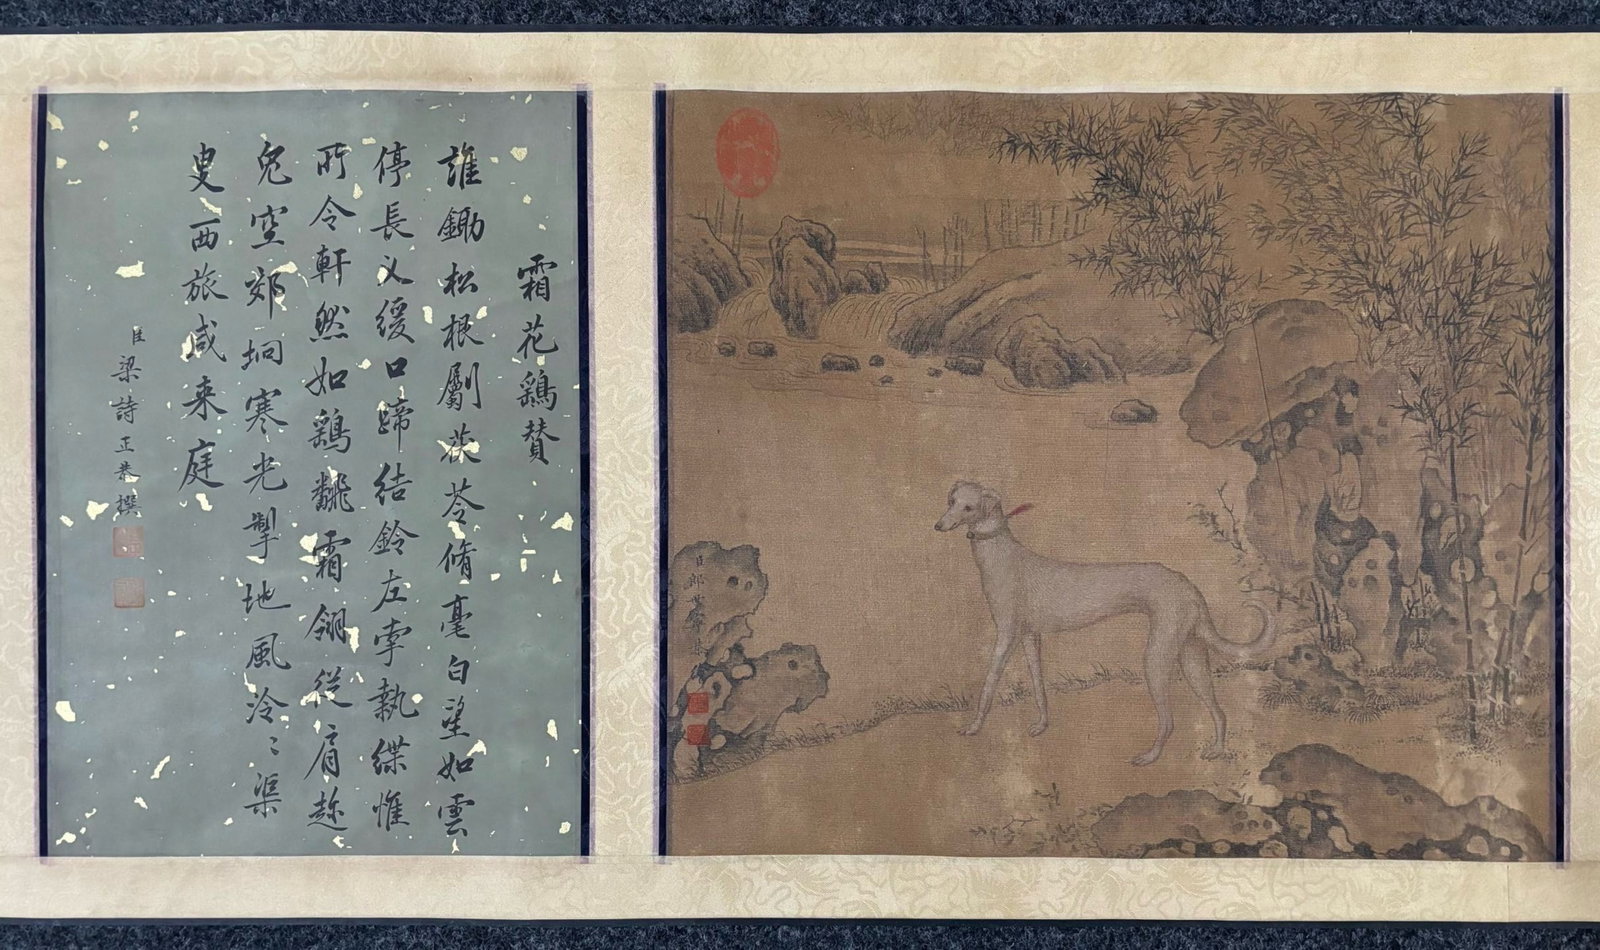 霜花鷂賛
誰鋤松根劚茯苓脩毫白望如雲
停長乂緩口蹄結鈴左牽執緤惟
所令軒然如鷂翻霜翎從肩趂
兔空郊坰寒光掣地風泠〻渠
叟西旅咸来庭
臣梁詩正恭撰
臣郎世寧恭